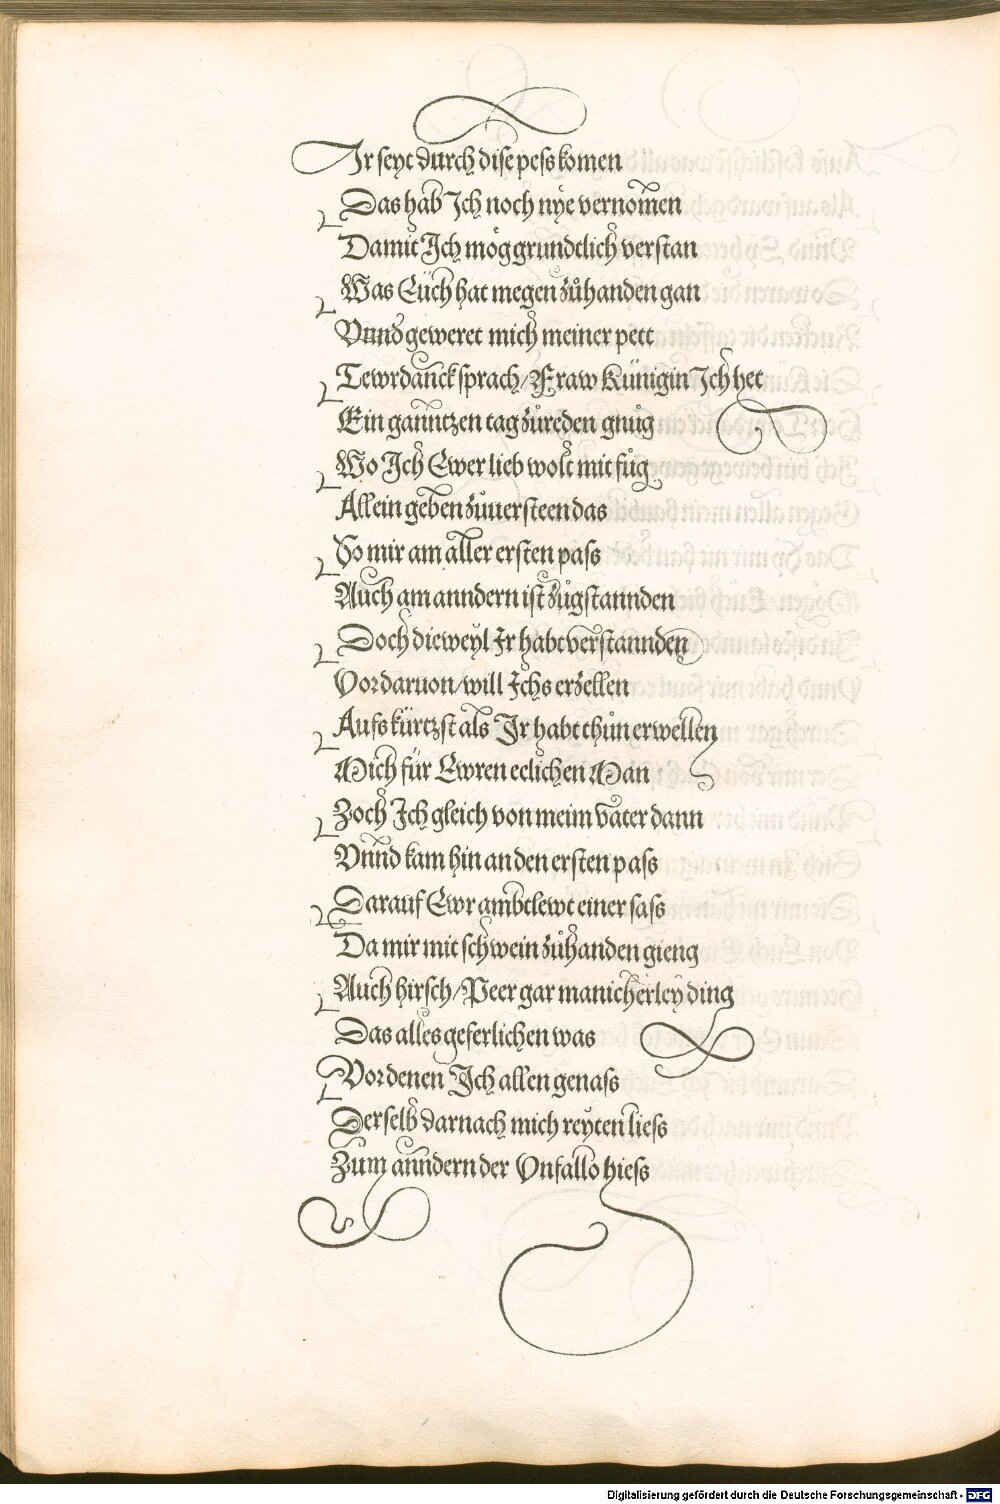 Ir seyt durch dise pess komen
Das hab Ich noch nye vernomen
Damit Ich mög grundtlich verstan
Was Eüch hat megen zůhanden gan
Vnnd geweret mich meiner pett
Tewrdanck sprach/Fraw Künigin Ich het
Ein ganntzen tag zůreden gnůg
Wo Ich Ewer lieb wolt mit fůg
Allein geben zůuersteen das
So mir am aller ersten pass
Auch am anndern ist zůgstannden
Doch dieweyl Ir habt verstannden
Vor daruon/will Ichs erzellen
Aufs kürtzst als Ir habt thůn erwellen
Mich für Ewren eelichen Man
Zoch Ich gleich von meim vater dann
Vnnd kam hin an den ersten pass
Darauf Ewr ambtlewt einer sass
Da mir mit schwein zůhanden gieng
Auch hirsch/Peer gar manicherley ding
Das alles geferlichen was
Vor denen Ich allen genass
Derselb darnach mich reyten liess
Zum anndern der Vnfallo hiess
Digitalisierung gefördert durch die Deutsche Forschungsgemeinschaft - DFG